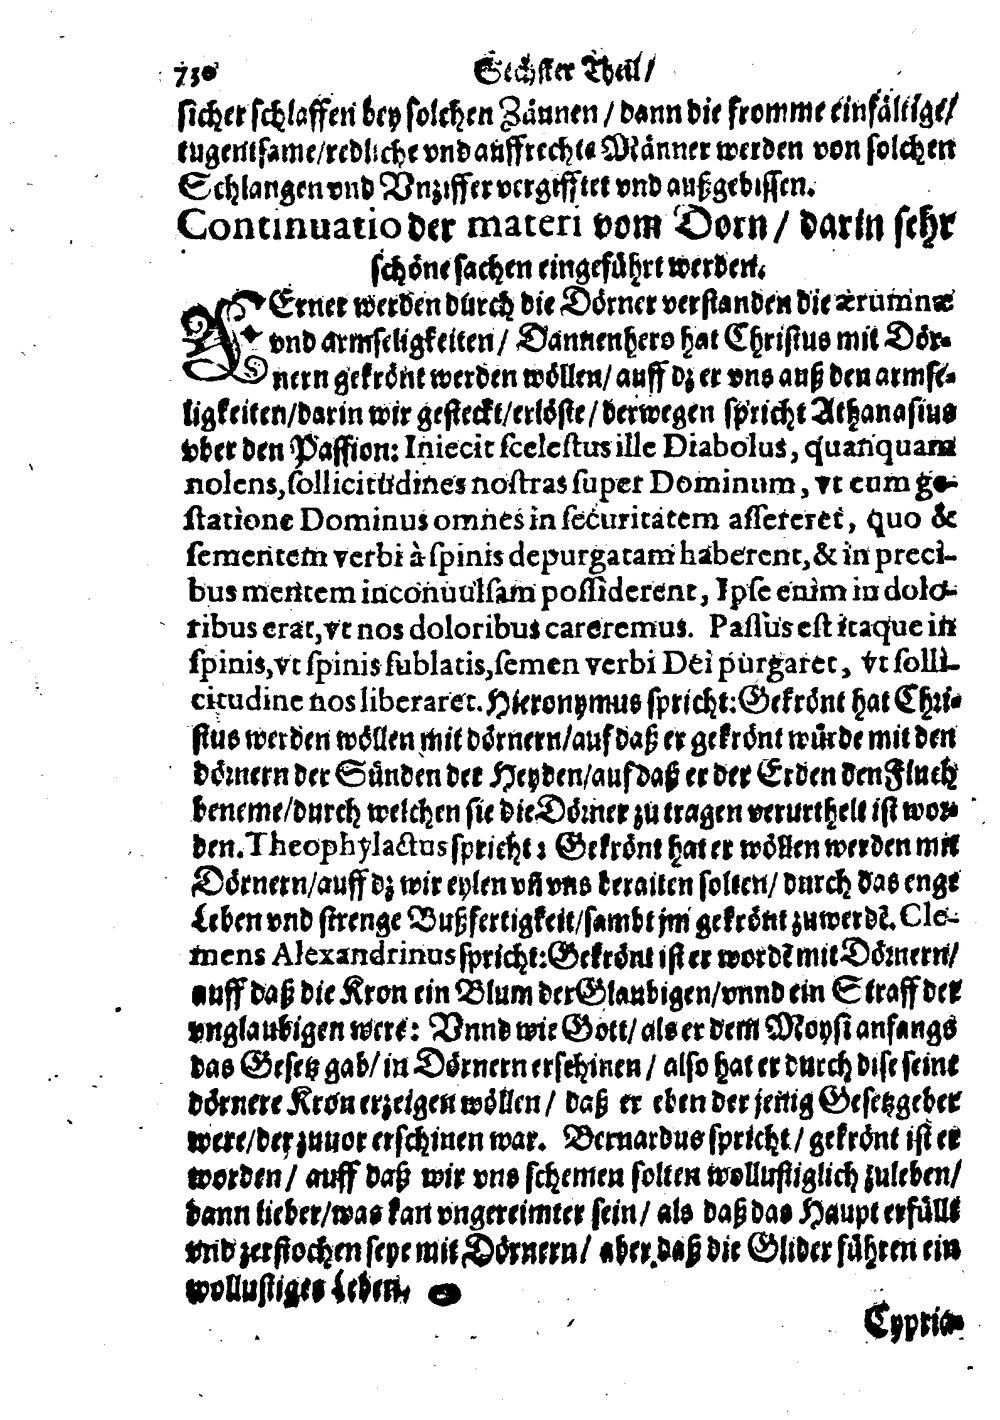 730 Sechster Theil/
sicher schlaffen bey solchen Zäunen / dann die fromme einfältige/
tugentsame/redliche vnd auffrechte Männer werden von solchen
Schlangen vnd Vnziffer vergifftet vnd außgebissen.
Continuatio der materi vom Dorn / darin sehr
schöne sachen eingeführt werden.
FErner werden durch die Dörner verstanden die ærumnæ
vnd armseligkeiten/ Dannenhero hat Christus mit Dör-
nern gekrönt werden wöllen/ auff dz er vns auß den armse-
ligkeiten/darin wir gesteckt/erlöste/ derwegen spricht Athanasius
vber den Passion: Iniecit scelestus ille Diabolus, quanquam
nolens, sollicitudines nostras super Dominum, vt eum ge-
statione Dominus omnes in securitatem assereret, quo &
sementem verbi à spinis depurgatam haberent, & in preci-
bus mentem inconuulsam possiderent, Ipse enim in dolo-
ribus erat, vt nos doloribus careremus. Passus est itaque in
spinis, vt spinis sublatis, semen verbi Dei purgaret, vt solli-
citudine nos liberaret. Hieronymus spricht: Gekrönt hat Chri-
stus werden wöllen mit dörnern/auf daß er gekrönt würde mit den
dörnern der Sünden der Heyden/auf daß er der Erden den Fluch
beneme/durch welchen sie die Dörner zu tragen verurthelt ist wor-
den. Theophylactus spricht: Gekrönt hat er wöllen werden mit
Dörnern/auff dz wir eylen vñ vns beraiten solten/ durch das enge
Leben vnd strenge Bußfertigkeit/sambt jm gekrönt zuwerdē. Cle-
mens Alexandrinus spricht: Gekrönt ist er wordē mit Dörnern/
auff daß die Kron ein Blum der Glaubigen/vnnd ein Straff der
vnglaubigen were: Vnnd wie Gott/ als er dem Moysi anfangs
das Gesetz gab/ in Dörnern erschinen / also hat er durch dise seine
dörnere Kron erzeigen wöllen/ daß er eben der jenig Gesetzgeber
were/der zuuor erschinen war. Bernardus spricht/ gekrönt ist er
worden/ auff daß wir vns schemen solten wollustiglich zuleben/
dann lieber/was kan vngereimter sein/ als daß das Haupt erfüllt
vnd zerstochen seye mit Dörnern/ aber daß die Glider führen ein
wollustiges Leben.
Cypria-